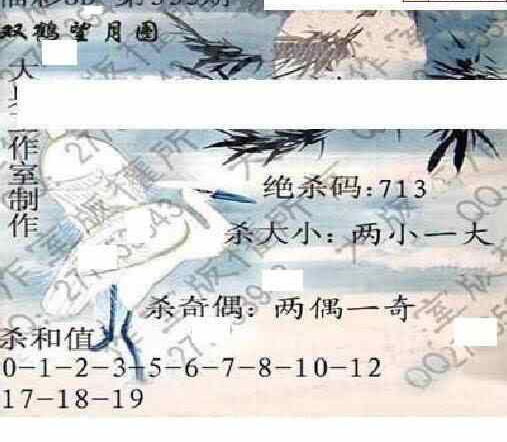 双鹤望月图
作室制作
绝杀码:713
杀大小:两小一大
杀奇偶:两偶一奇
杀和值
0-1-2-3-5-6-7-8-10-12
17-18-19